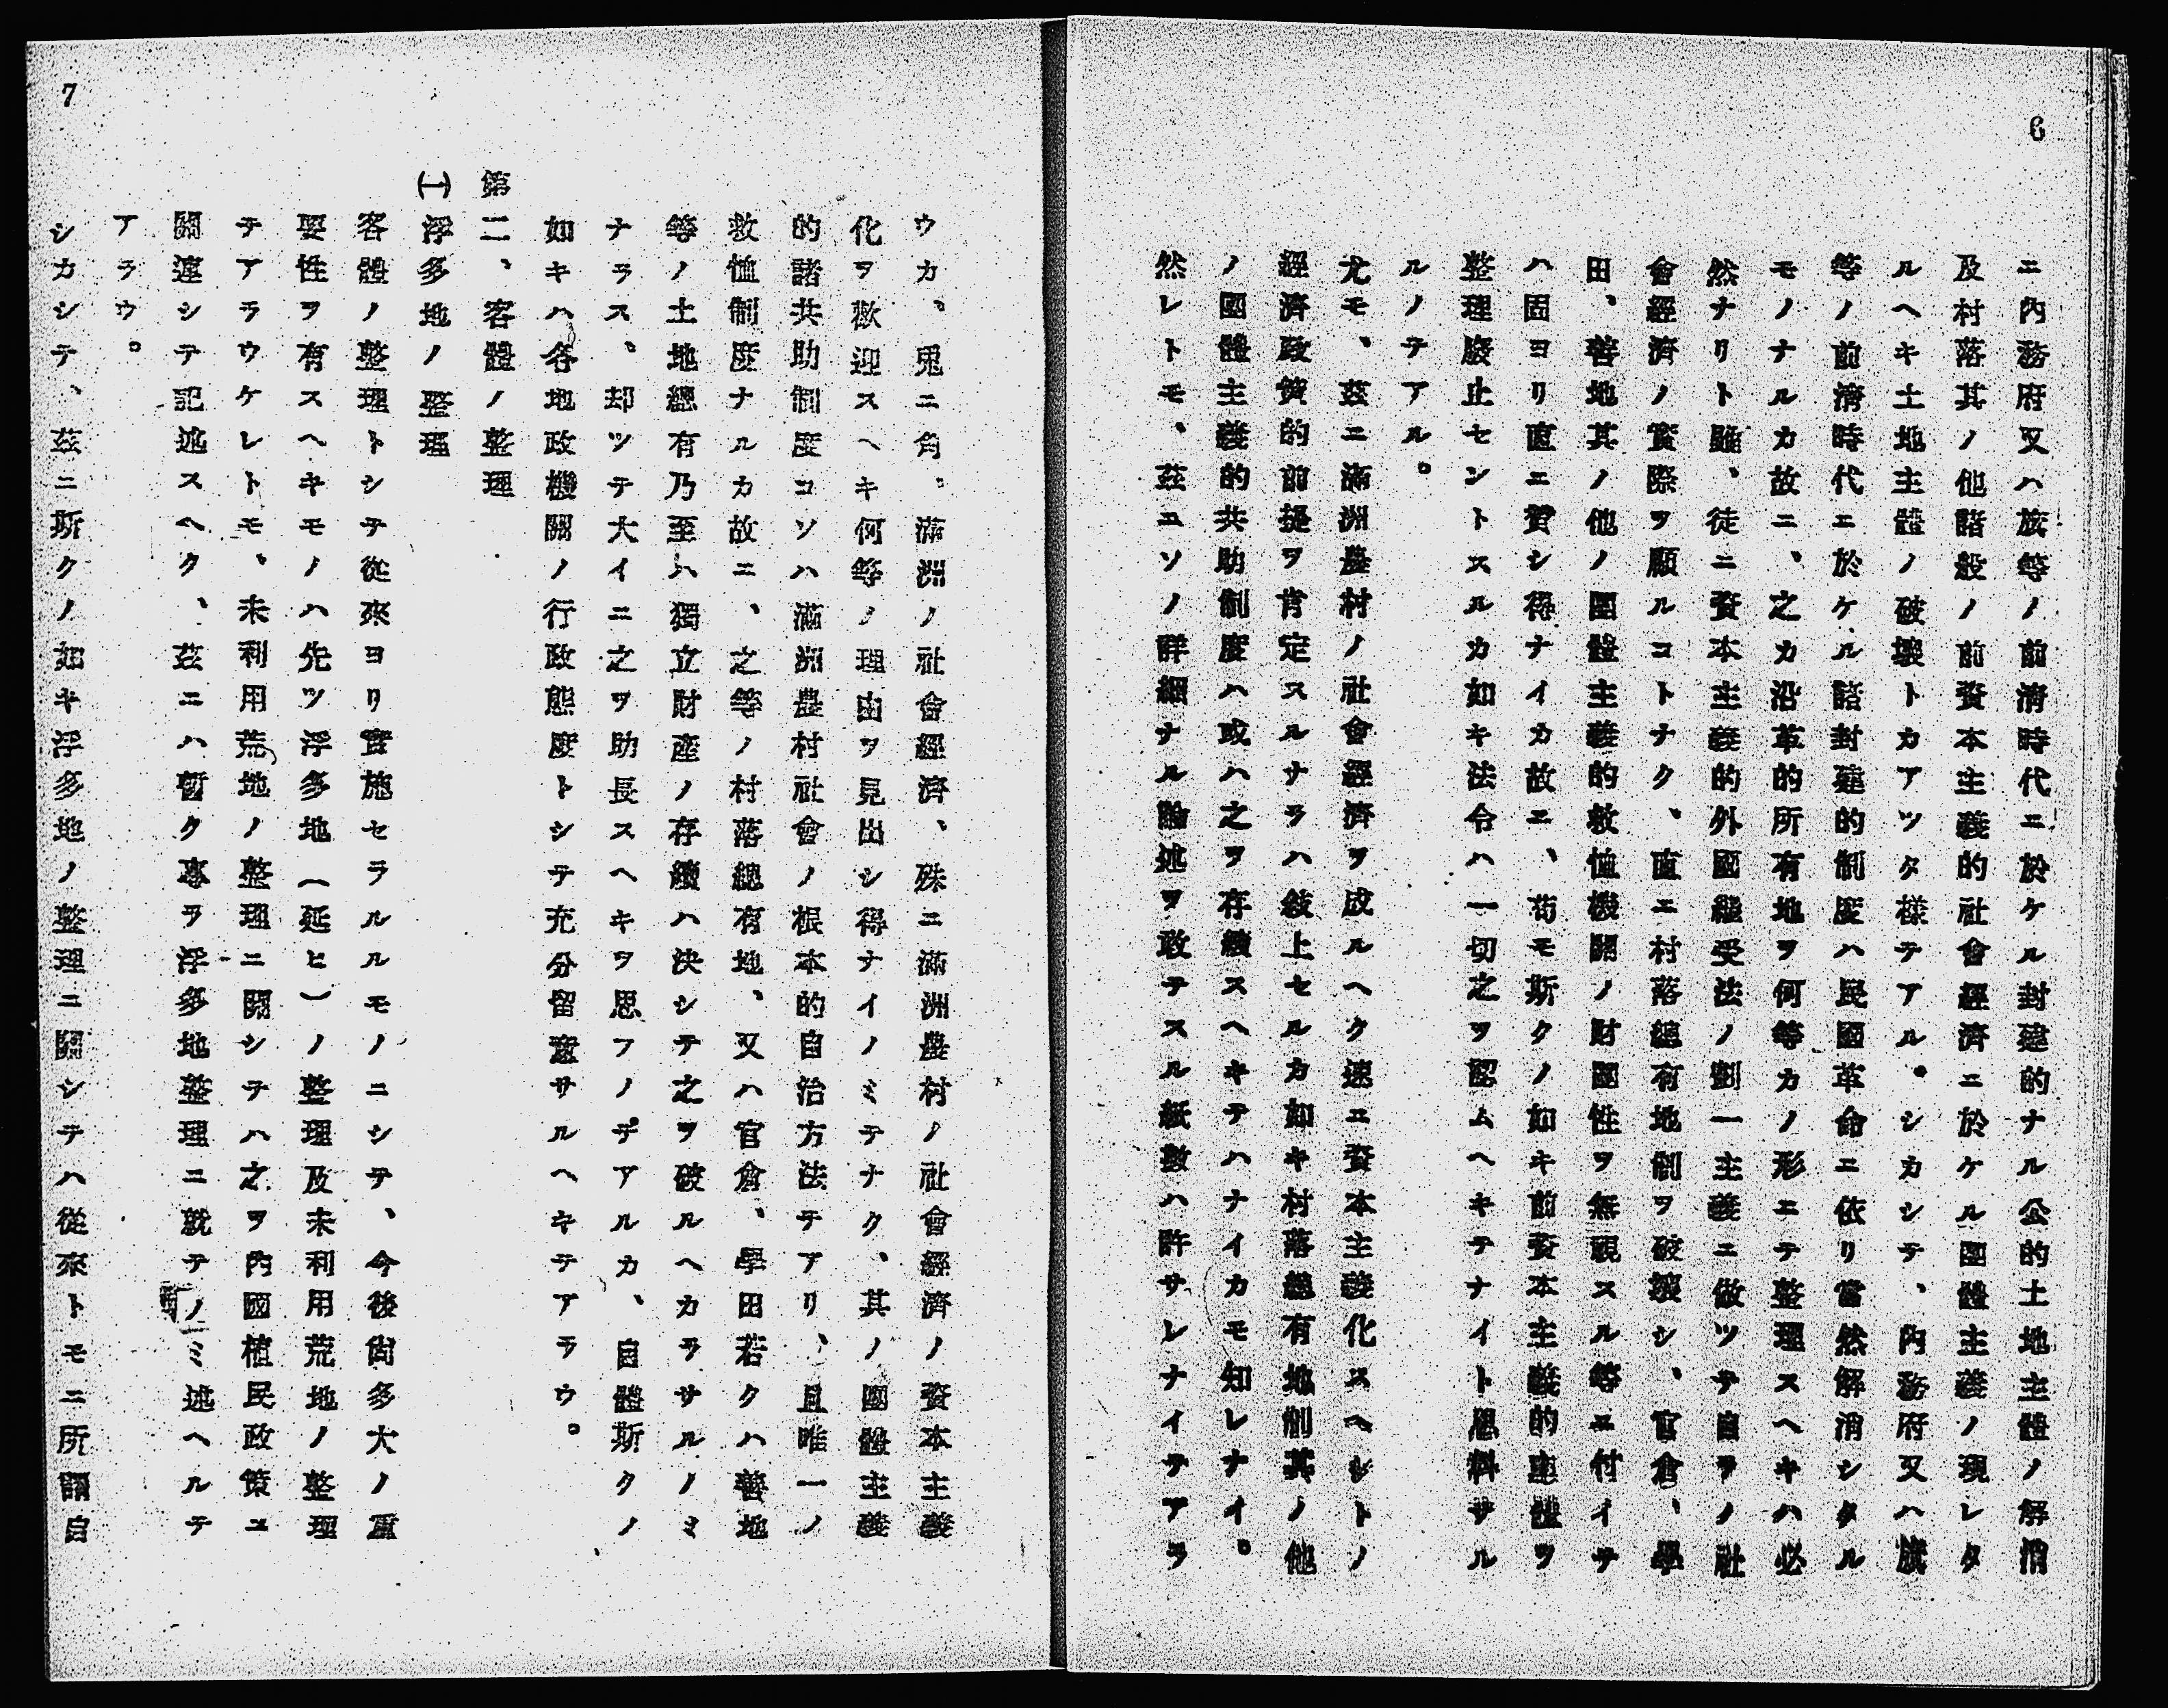 6
ニ內務府又ハ旗等ノ前淸時代ニ於ケル封建的ナル公的土地主體ノ解消
及村落其ノ他諸般ノ前資本主義的社會經濟ニ於ケル團體主義ノ現レタ
ルヘキ土地主體ノ破壞トカアツタ樣テアル。シカシテ、內務府又ハ旗
等ノ前淸時代ニ於ケル諸封建的制度ハ民國革命ニ依リ當然解消シタル
モノナルカ故ニ、之カ沿革的所有地ヲ何等カノ形ニテ整理スヘキハ必
然ナリト雖、徒ニ資本主義的外國繼受法ノ劃一主義ニ倣ツテ自ラノ社
會經濟ノ實際ヲ顧ルコトナク、直ニ村落總有地制ヲ破壞シ、官倉、學
田、善地其ノ他ノ團體主義的救恤機關ノ財團性ヲ無視スル等ニ付イテ
ハ固ヨリ直ニ贊シ得ナイカ故ニ、苟モ斯クノ如キ前資本主義的主體ヲ
整理廢止セントスルカ如キ法令ハ一切之ヲ認ムヘキテナイト思料サル
ルノテアル。
尤モ、茲ニ滿洲農村ノ社會經濟ヲ成ルヘク速ニ資本主義化スヘシトノ
經濟政策的前提ヲ肯定スルナラハ敍上セルカ如キ村落總有地制其ノ他
ノ團體主義的共助制度ハ或ハ之ヲ存續スヘキテハナイカモ知レナイ。
然レトモ、茲ニソノ詳細ナル論述ヲ敢テスル紙數ハ許サレナイテアラ
7
ウカ、兎ニ角、滿洲ノ社會經濟、殊ニ滿洲農村ノ社會經濟ノ資本主義
化ヲ歡迎スヘキ何等ノ理由ヲ見出シ得ナイノミテナク、其ノ團體主義
的諸共助制度コソハ滿洲農村社會ノ根本的自治方法テアリ、且唯一ノ
救恤制度ナルカ故ニ、之等ノ村落總有地、又ハ官倉、學田若クハ善地
等ノ土地總有乃至ハ獨立財產ノ存續ハ決シテ之ヲ破ルヘカラサルノミ
ナラス、却ツテ大イニ之ヲ助長スヘキヲ思フノデアルカ、自體斯クノ
如キハ各地政機關ノ行政態度トシテ充分留意サルヘキテアラウ。
第二、客體ノ整理
㈠ 浮多地ノ整理
客體ノ整理トシテ從來ヨリ實施セラルルモノニシテ、今後尙多大ノ重
要性ヲ有スヘキモノハ先ツ浮多地(延ヒ)ノ整理及未利用荒地ノ整理
テアラウケレトモ、未利用荒地ノ整理ニ關シテハ之ヲ內國植民政策ニ
關連シテ記述スヘク、茲ニハ暫ク專ラ浮多地整理ニ就テノミ述ヘルテ
アラウ。
シカシテ、茲ニ斯クノ如キ浮多地ノ整理ニ關シテハ從來トモニ所謂自